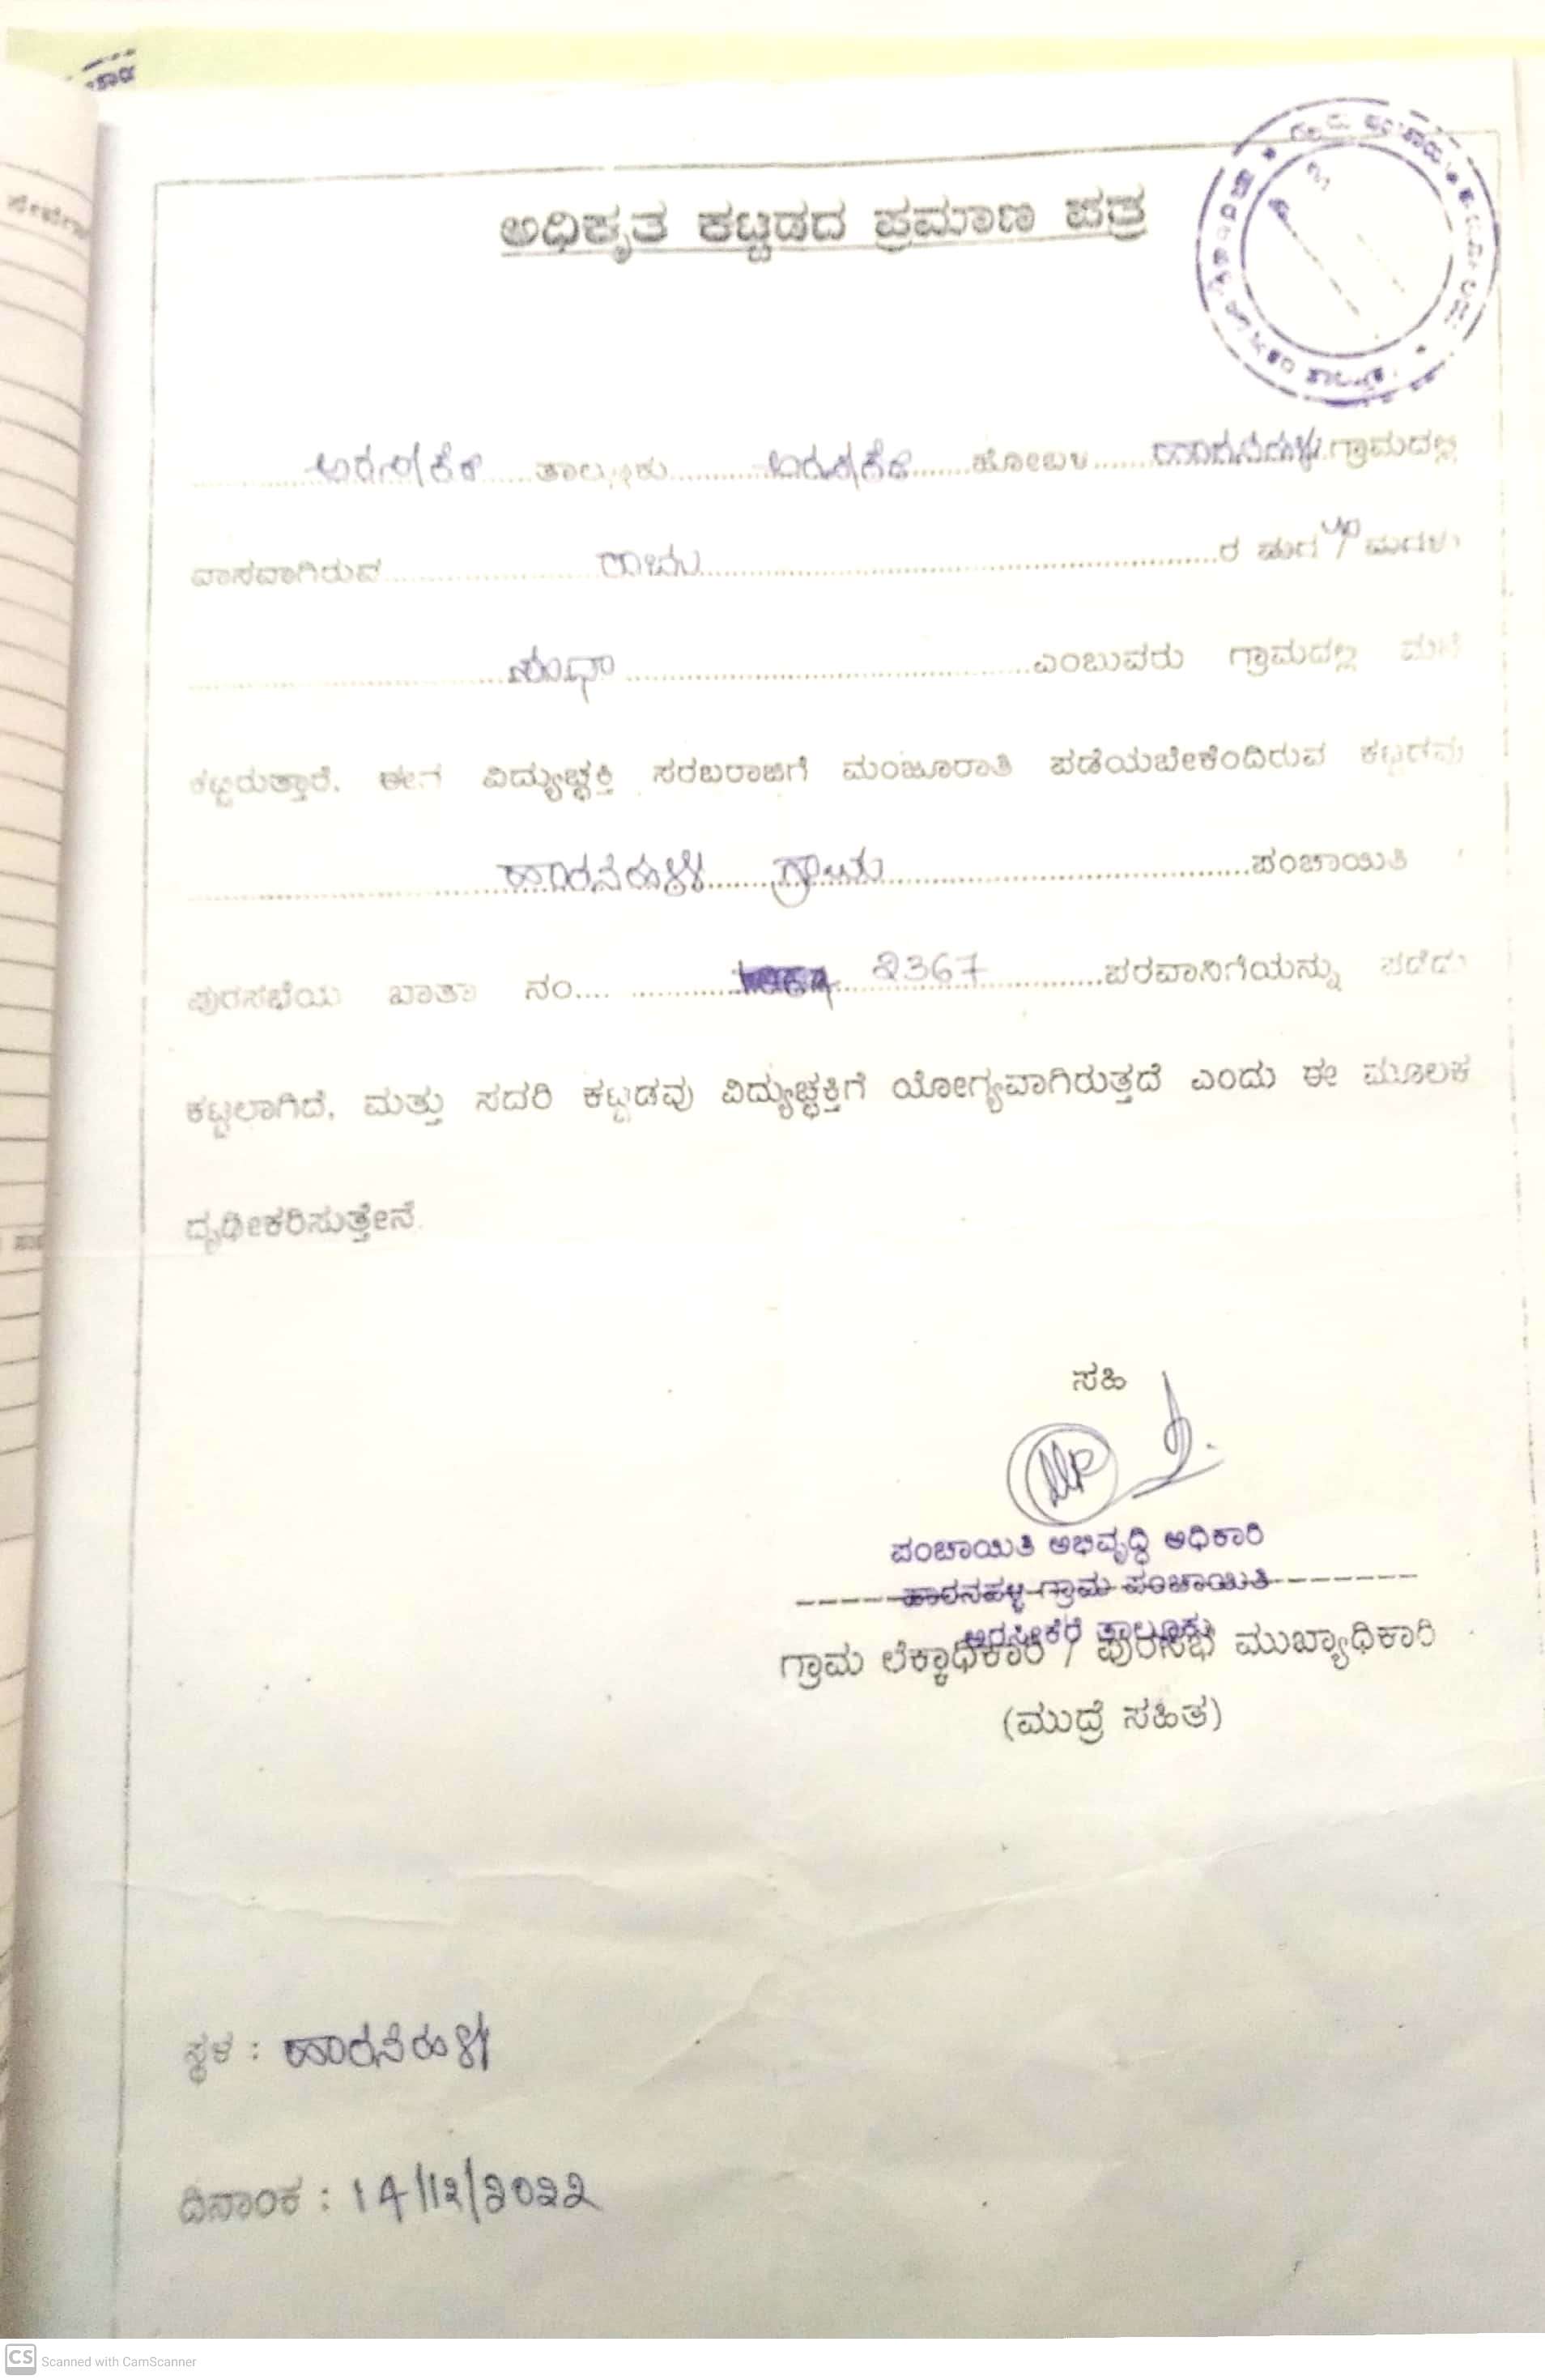 ಅಧಿಕೃತ ಕಟ್ಟಡದ ಪ್ರಮಾಣ ಪತ್ರ
ಅರಸೀಕೆರೆ ತಾಲ್ಲೂಕು ಅರಸೀಕೆರೆ ಹೋಬಳಿ ಹಾರನಹಳ್ಳಿ ಗ್ರಾಮದಲ್ಲಿ
ವಾಸವಾಗಿರುವ ರಾಜು ರ ಮಗ / ಮಗಳು
ಸುಧಾ ಎಂಬುವರು ಗ್ರಾಮದಲ್ಲಿ ಮನೆ
ಕಟ್ಟಿರುತ್ತಾರೆ. ಈಗ ವಿದ್ಯುಚ್ಛಕ್ತಿ ಸರಬರಾಜಿಗೆ ಮಂಜೂರಾತಿ ಪಡೆಯಬೇಕೆಂದಿರುವ ಕಟ್ಟಡವು
ಹಾರನಹಳ್ಳಿ ಗ್ರಾಮ ಪಂಚಾಯಿತಿ
ಪುರಸಭೆಯ ಖಾತಾ ನಂ.... 2367 ಪರವಾನಿಗೆಯನ್ನು ಪಡೆದು
ಕಟ್ಟಲಾಗಿದೆ, ಮತ್ತು ಸದರಿ ಕಟ್ಟಡವು ವಿದ್ಯುಚ್ಛಕ್ತಿಗೆ ಯೋಗ್ಯವಾಗಿರುತ್ತದೆ ಎಂದು ಈ ಮೂಲಕ
ದೃಢೀಕರಿಸುತ್ತೇನೆ.
ಸಹಿ
ಪಂಚಾಯಿತಿ ಅಭಿವೃದ್ಧಿ ಅಧಿಕಾರಿ
ಹಾರನಹಳ್ಳಿ ಗ್ರಾಮ ಪಂಚಾಯಿತಿ
ಅರಸೀಕೆರೆ ತಾಲ್ಲೂಕು
ಗ್ರಾಮ ಲೆಕ್ಕಾಧಿಕಾರಿ / ಪುರಸಭೆ ಮುಖ್ಯಾಧಿಕಾರಿ
(ಮುದ್ರೆ ಸಹಿತ)
ಸ್ಥಳ : ಹಾರನಹಳ್ಳಿ
ದಿನಾಂಕ : 14/12/2022
CS Scanned with CamScanner